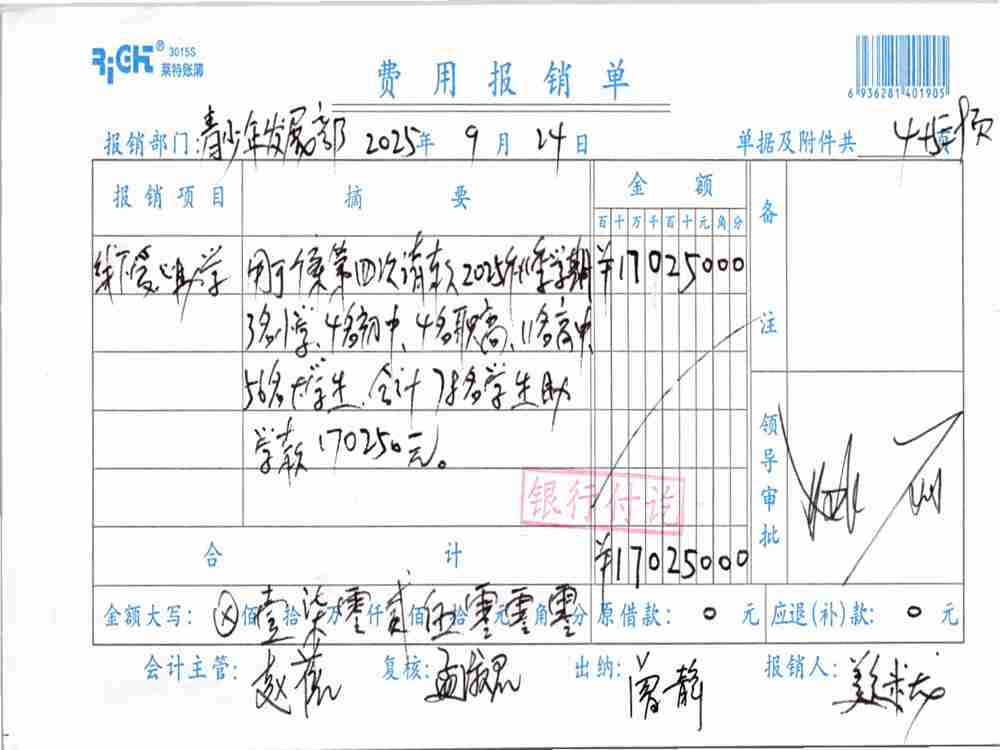 RiGHT® 3015S
莱特账簿
费用报销单
6 936281 401905
报销部门:青少年发展部 2025年 9月 24日 单据及附件共 45页
报销项目 摘要 金额 备注
百十万千百十元角分
线下爱心助学 用于个案第四次请款2025秋季学期 ¥17025000
3名小学、4名初中、4名职高、11名高中
56名大学生,合计78名学生助
学款170250元。
银行付讫
领导审批
合计 ¥17025000
金额大写: ⊗佰壹拾柒万零仟贰佰伍拾零元零角零分 原借款: 0 元 应退(补)款: 0 元
会计主管: 赵 复核: 孟淑君 出纳: 曾静 报销人: